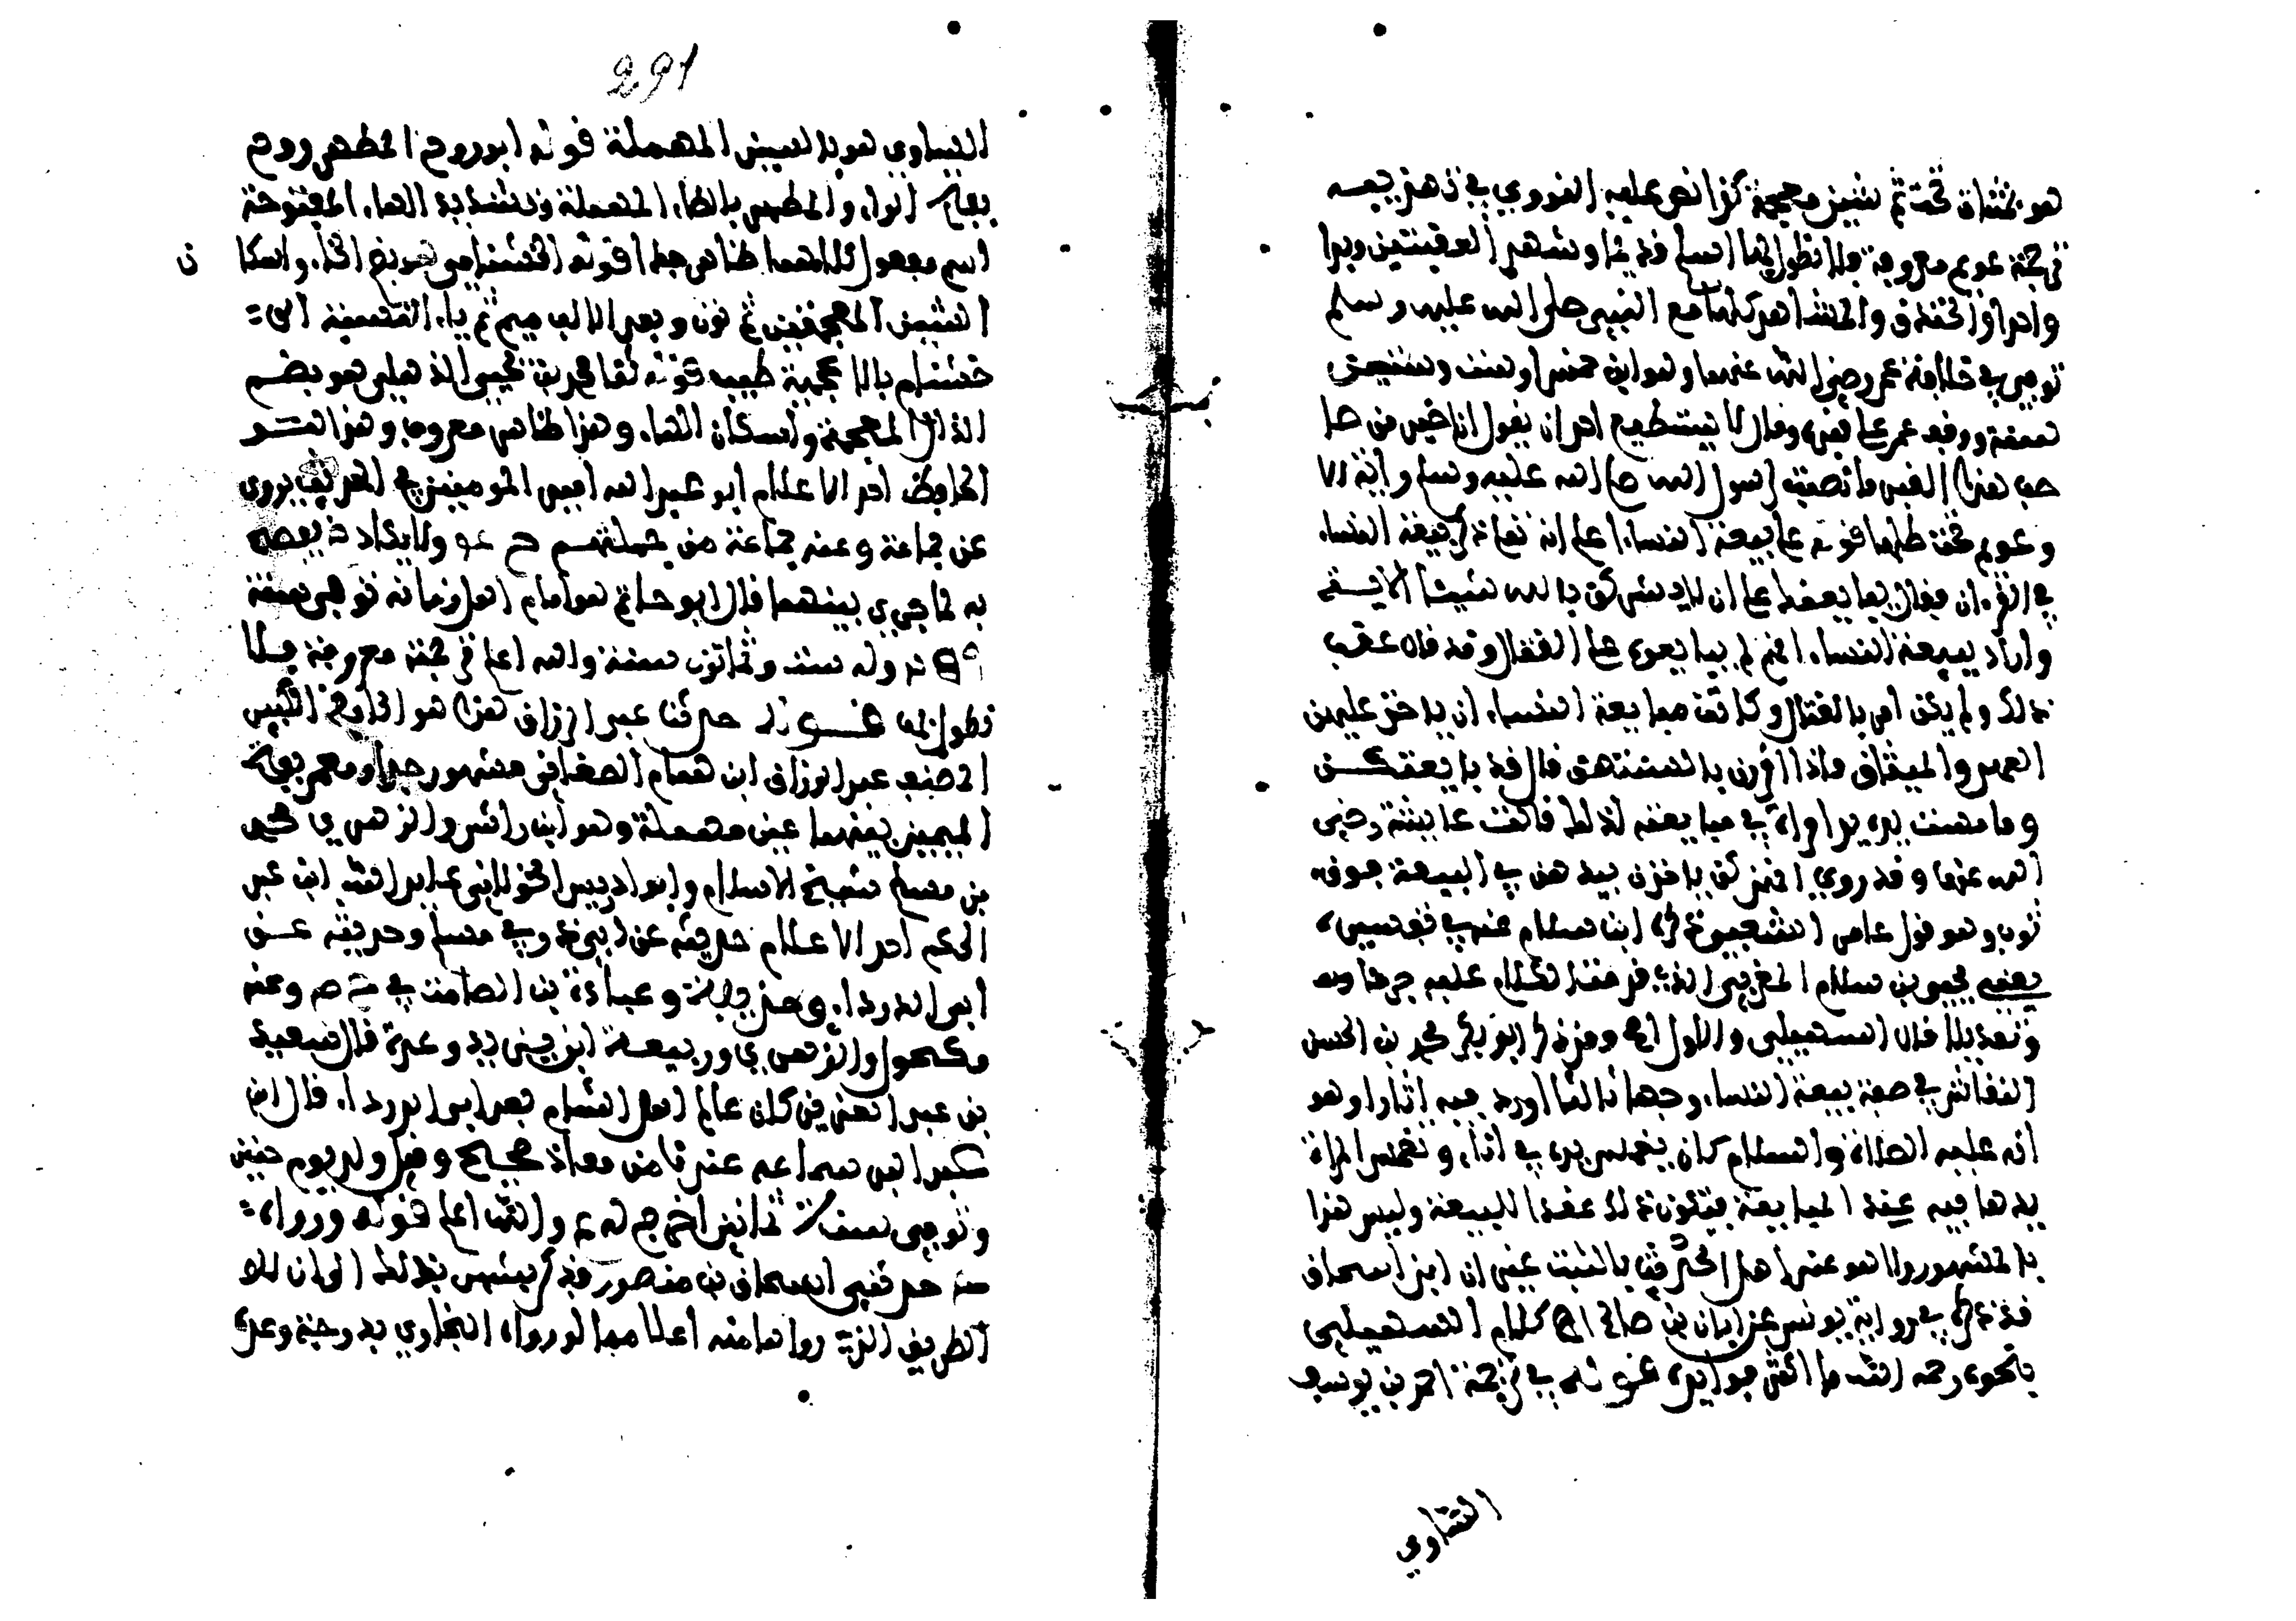 هو بمثناة تحت ثم شين معجمة كذا نص عليه النووي في تهذيبه
ترجمة عويم معروفة ولا نطول بها اسلم قديما وشهد العقبتين وبدرا
واحدا والخندق والمشاهد كلها مع النبي صلى الله عليه وسلم
توفي في خلافة عمر رضي الله عنهما وهو ابن خمس او ست وستين
سنة ووقف عمر على قبره وقال لا يستطيع احد ان يقول انا خير من صا
حب هذا القبر ما نصبت لرسول الله صلى الله عليه وسلم راية الا
وعويم تحت ظلها قوله على بيعة النساء اعلم انه تعالى ذكر بيعة النساء
في القرءان فقال يبايعنك على ان لا يشركن بالله شيئا الآية
واراد ببيعة النساء انهم لم يبايعوه على القتال وقد قال عقب
ذلك ولم يكن امر بالقتال وكانت مبايعة النساء ان ياخذ عليهن
العهد والميثاق فاذا اقررن بالسنتهن قال قد بايعتكن
وما مست يده يد امراة في مبايعته لذلك قالت عائشة رضي
الله عنها وقد روي انهن كن ياخذن بيده في البيعة فوق
ثوب وهو قول عامر الشعبي ذكره ابن سلام عنه في تفسيره
يعني يحيى بن سلام المغربي الذي قدمنا الكلام عليه جرحا و
وتعديلا قال السهيلي والاول اصح وقد ذكر ابو بكر محمد بن الحسن
النقاش في صفة بيعة النساء وجها ثالثا اورد فيه اثارا وهو
انه عليه الصلاة والسلام كان يغمس يده في اناء وتغمس المراة
يدها فيه عند المبايعة فيكون ذلك عقدا للبيعة وليس هذا
بالمشهور ولا هو عند اهل الحديث بالثبت غير ان ابن اسحاق
قد ذكره في رواية يونس عن ابان بن صالح اه كلام السهيلي
بنحوه رحمه الله ما اكثر فوائده قوله في ترجمة احمد بن يوسف
الشاوي
291
الشاوي هو بالسين المهملة قوله ابو روح المطهر روح
بفتح الراء والمطهر بالطاء المهملة وتشديد الهاء المفتوحة
اسم مفعول وكلاهما ظاهر جدا قوله الخشنامي هو بضم الخاء واسكان
الشين المعجمتين ثم نون وبعد الالف ميم ثم ياء النسبة الى
خشنام بالاعجمية طيب قوله ثنا محمد بن يحيى الذهلي هو بضم
الذال المعجمة واسكان الهاء وهذا ظاهر معروف وهذا هو
الحافظ احد الاعلام ابو عبد الله امير المومنين في الحديث يروي
عن جماعة وعنه جماعة من جملتهم خ عو ولا يكاد خ يفصح
به لما جرى بينهما قال ابو حاتم هو امام اهل زمانه توفي سنة
وله ست وثمانون سنة والله اعلم ترجمته معروفة فلا
نطول بها قوله حدثنا عبد الرزاق هذا هو الحافظ الكبير
المصنف عبد الرزاق ابن همام الصنعاني مشهور جدا ومعمر بفتح
الميمين بينهما عين مهملة وهو ابن راشد والزهري محمد
بن مسلم شيخ الاسلام وابو ادريس الخولاني عايذ الله ابن عبد
الله احد الاعلام حديثه عن ابي ذر في مسلم وحديثه عن
ابي الدرداء وحذيفة وعبادة بن الصامت في خ م وعنه
مكحول والزهري وربيعة ابن يزيد وعدة قال سعيد
بن عبد العزيز كان عالم اهل الشام بعد ابي الدرداء قال ابن
عبد البر سماعه عندنا من معاذ صحيح وقيل ولد يوم حنين
وتوفي سنة ثمانين اخرج له ع والله اعلم قوله ورواه
حدثني اسحاق بن منصور فذكره يشير بذلك الى ان للا
الطريق الذي رواها منه اعلا مما لو رواه البخاري بدرجة وعد